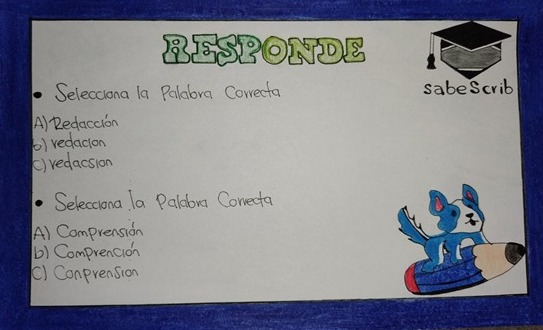 RESPONDE
sabeScrib
• Selecciona la Palabra Correcta
A) Redacción
b) redacion
c) redacsion
• Selecciona la Palabra Correcta
A) Comprensión
b) Comprención
c) Conprension